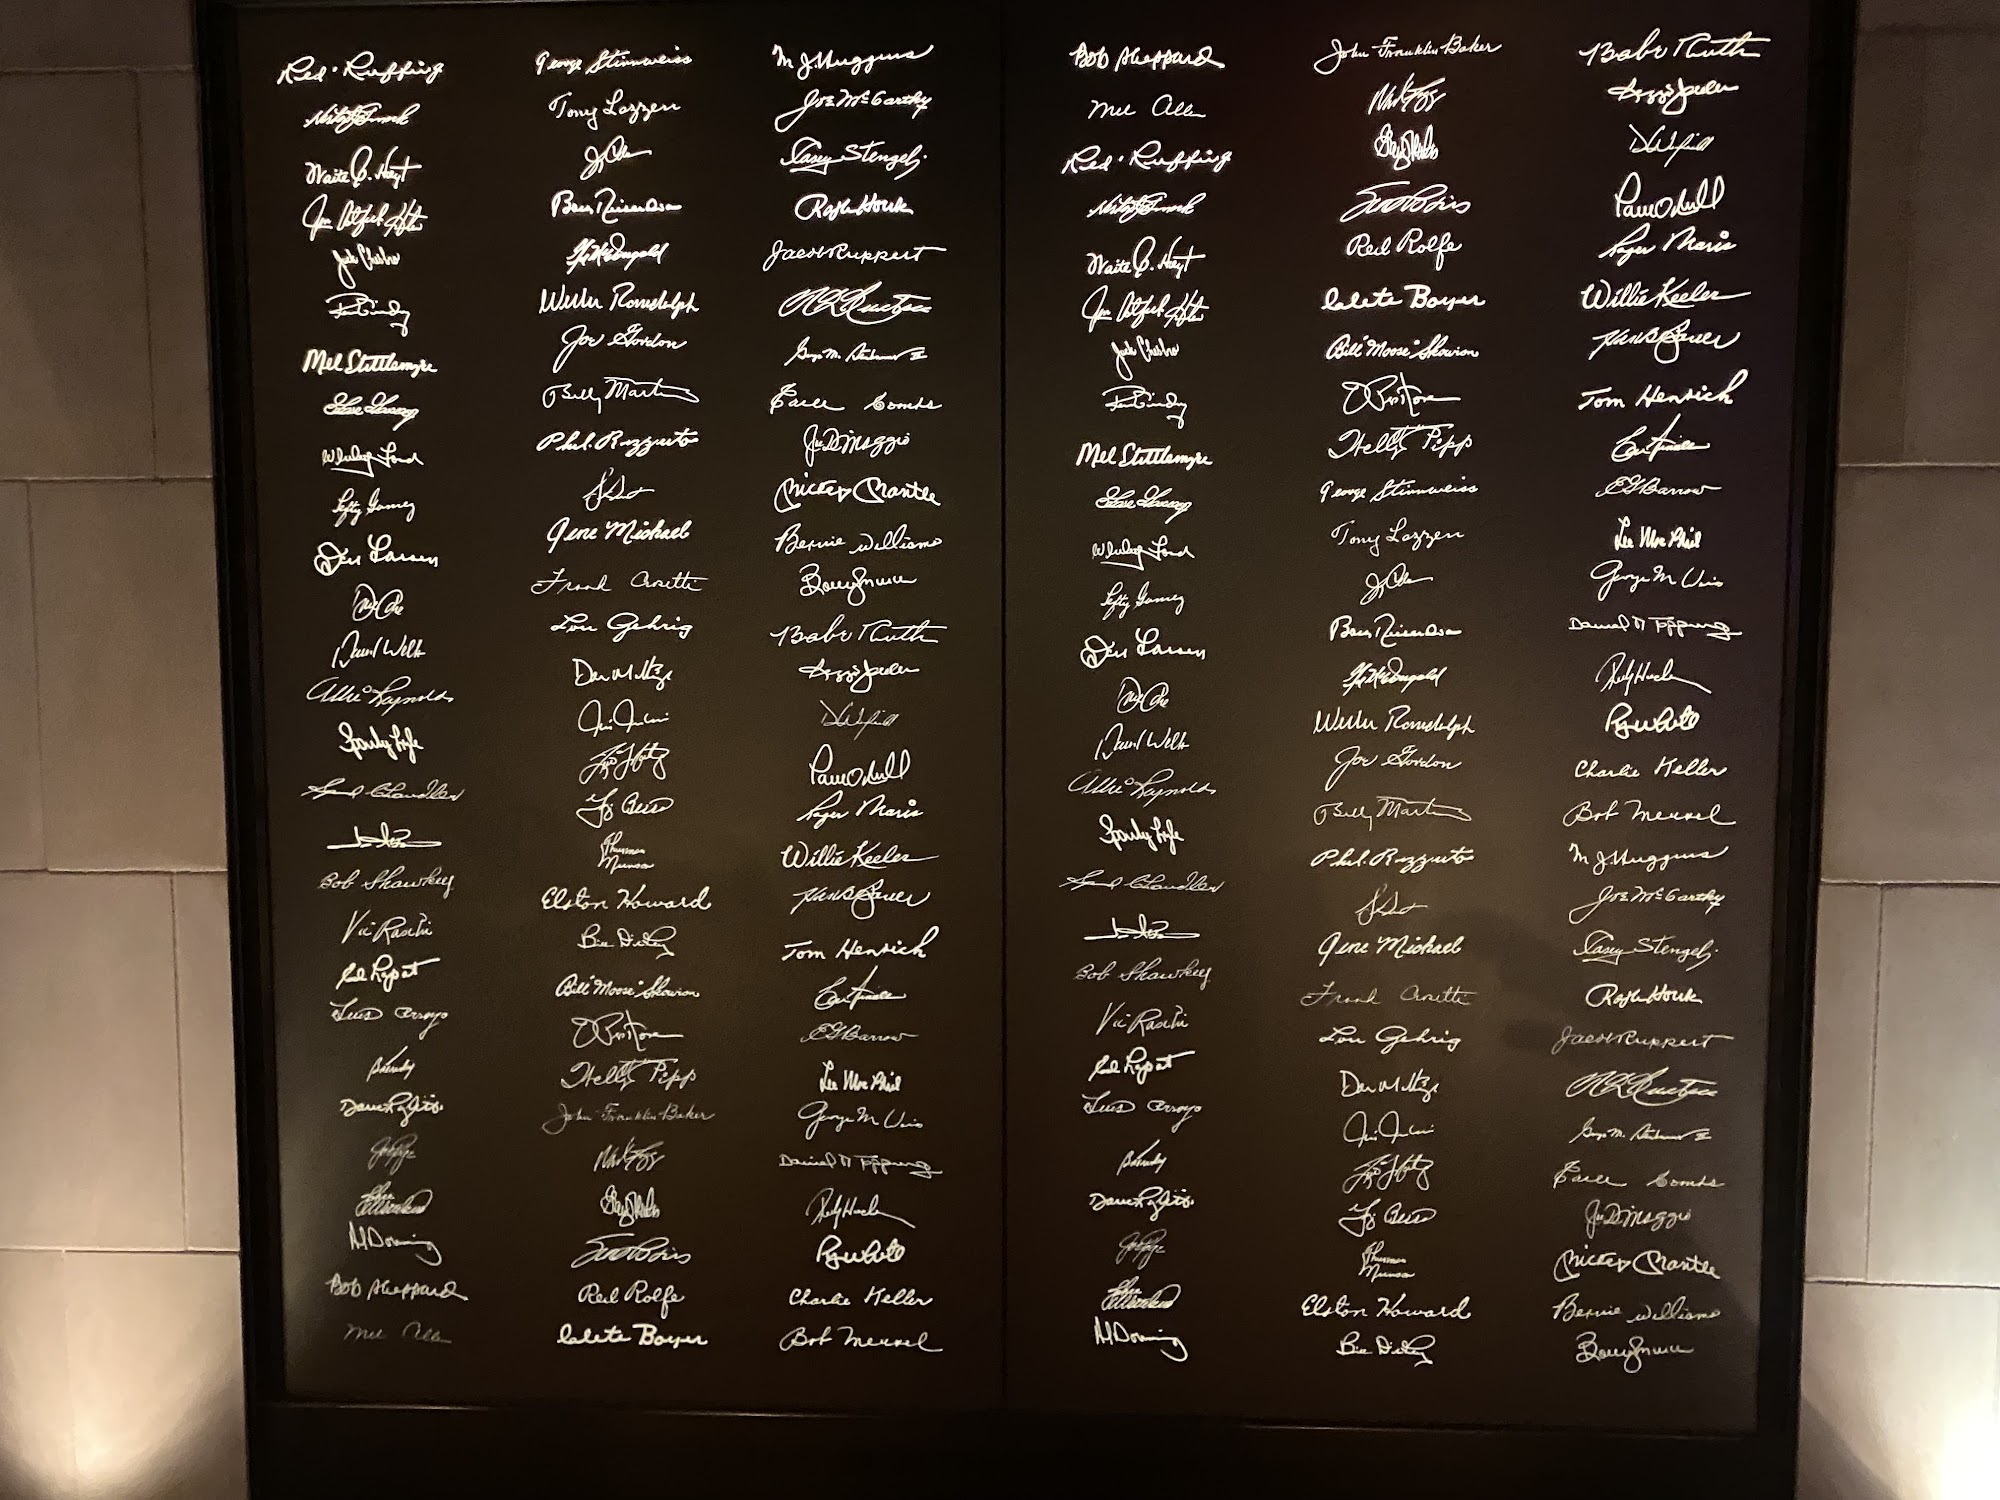 Red Ruffing
Waite C. Hoyt
Jim Catfish Hunter
Jack Chesbro
Ron Guidry
Mel Stottlemyre
Whitey Ford
Lefty Gomez
Don Larsen
David Wells
Allie Reynolds
Sparky Lyle
Spud Chandler
Bob Shawkey
Vic Raschi
Ed Lopat
Luis Arroyo
Dave Righetti
Joe Page
Al Downing
Bob Sheppard
Mel Allen
George Stirnweiss
Tony Lazzeri
Bobby Richardson
Gil McDougald
Willie Randolph
Joe Gordon
Billy Martin
Phil Rizzuto
Gene Michael
Frank Crosetti
Lou Gehrig
Don Mattingly
Yogi Berra
Thurman
Munson
Elston Howard
Bill Dickey
Bill "Moose" Skowron
Wally Pipp
John Franklin Baker
Red Rolfe
Clete Boyer
M. J. Huggins
Joe McCarthy
Casey Stengel
Ralph Houk
Jacob Ruppert
George M. Steinbrenner III
Earle Combs
Joe DiMaggio
Mickey Mantle
Bernie Williams
Bobby Murcer
Babe Ruth
Reggie Jackson
D Winfield
Paul O'Neill
Roger Maris
Willie Keeler
Hank Bauer
Tom Henrich
E G Barrow
Lee MacPhail
George M Weiss
Daniel R Topping
Roy White
Charlie Keller
Bob Meusel
Bob Sheppard
Mel Allen
Red Ruffing
Waite C. Hoyt
Jim Catfish Hunter
Jack Chesbro
Ron Guidry
Mel Stottlemyre
Whitey Ford
Lefty Gomez
Don Larsen
David Wells
Allie Reynolds
Sparky Lyle
Spud Chandler
Bob Shawkey
Vic Raschi
Ed Lopat
Luis Arroyo
Dave Righetti
Joe Page
Al Downing
John Franklin Baker
Red Rolfe
Clete Boyer
Bill "Moose" Skowron
Wally Pipp
George Stirnweiss
Tony Lazzeri
Bobby Richardson
Gil McDougald
Willie Randolph
Joe Gordon
Billy Martin
Phil Rizzuto
Gene Michael
Frank Crosetti
Lou Gehrig
Don Mattingly
Yogi Berra
Thurman
Munson
Elston Howard
Bill Dickey
Babe Ruth
Reggie Jackson
D Winfield
Paul O'Neill
Roger Maris
Willie Keeler
Hank Bauer
Tom Henrich
E G Barrow
Lee MacPhail
George M Weiss
Daniel R Topping
Roy White
Charlie Keller
Bob Meusel
M. J. Huggins
Joe McCarthy
Casey Stengel
Ralph Houk
Jacob Ruppert
George M. Steinbrenner III
Earle Combs
Joe DiMaggio
Mickey Mantle
Bernie Williams
Bobby Murcer